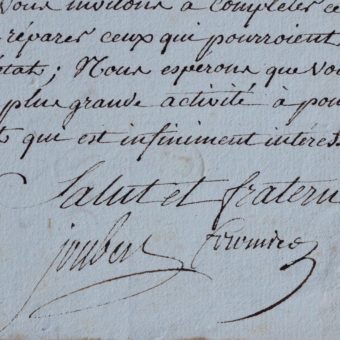 Vous invitons à completer ce
réparer ceux qui pourroient
état; Nous esperons que vou
plus grande activité à pou
qui est infiniment intéress
Salut et fratern
joubert